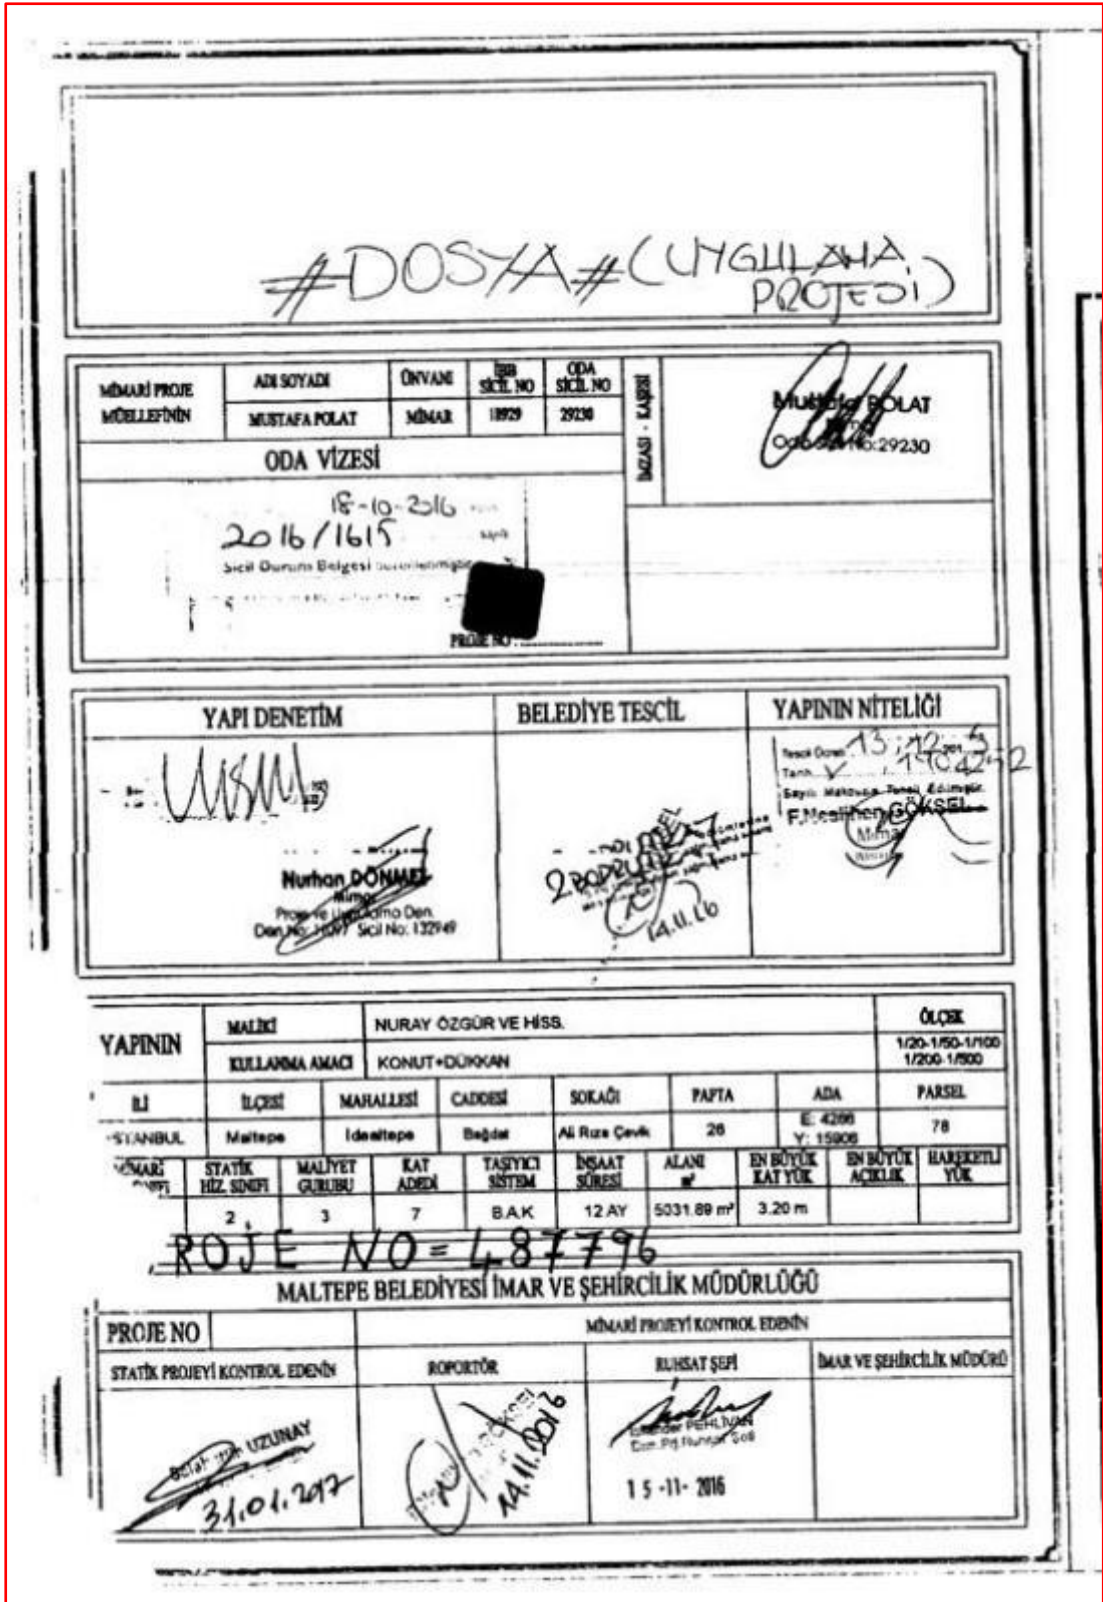 #DOSYA# (UYGULAMA PROJESİ)
MİMARİ PROJE MÜELLEFİNİN
ADI SOYADI ÜNVANI İBB SİCİL NO ODA SİCİL NO
MUSTAFA POLAT MİMAR 18929 29230
İMZASI - KAŞESİ
Mustafa POLAT
No:29230
ODA VİZESİ
18-10-2016
2016/1615
Sicil Durum Belgesi
PROJE NO
YAPI DENETİM BELEDİYE TESCİL YAPININ NİTELİĞİ
Tarih
Sayılı Makbuzla Tescil Edilmiştir.
F.Neslihan GÖKSEL
Mimar
Nurhan DÖNMEZ
Mimar
Proje ve Uygulama Den.
Sicil No: 132949
2 BODRUM
14.11.16
YAPININ MALİKİ NURAY ÖZGÜR VE HİSS. ÖLÇEK
KULLANMA AMACI KONUT+DÜKKAN 1/20-1/50-1/100
1/200-1/500
İLİ İLÇESİ MAHALLESİ CADDESİ SOKAĞI PAFTA ADA PARSEL
İSTANBUL Maltepe İdealtepe Bağdat Ali Rıza Çevik 26 E: 4266 Y: 15906 78
MİMARİ STATİK HİZ. SINIFI MALİYET GURUBU KAT ADEDİ TAŞIYICI SİSTEM İNŞAAT SÜRESİ ALANI m² EN BÜYÜK KAT YÜK EN BÜYÜK AÇIKLIK HAREKETLİ YÜK
2 3 7 B.A.K 12 AY 5031.89 m² 3.20 m
ROJE NO=487796
MALTEPE BELEDİYESİ İMAR VE ŞEHİRCİLİK MÜDÜRLÜĞÜ
PROJE NO MİMARİ PROJEYİ KONTROL EDENİN
STATİK PROJEYİ KONTROL EDENİN ROPORTÖR RUHSAT ŞEFİ İMAR VE ŞEHİRCİLİK MÜDÜRÜ
UZUNAY
31.01.2017
GÖKSEL
14.11.2016
PEHLİVAN
15-11-2016